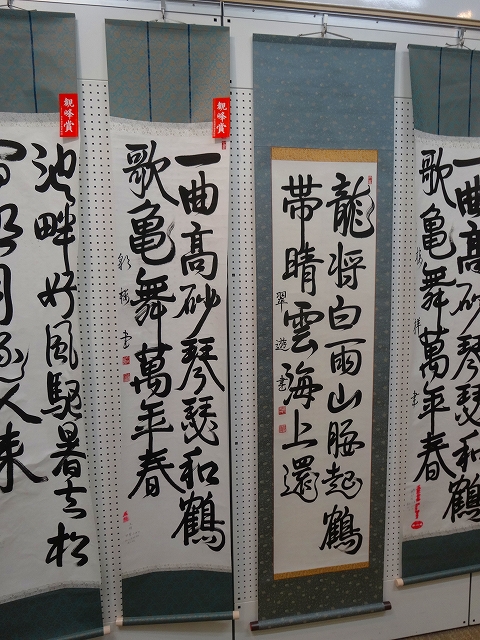 一曲高砂琴瑟和鶴
歌亀舞萬年春
龍将白雨山腰起鶴
帯晴雲海上還
翠遊書
観峰賞
一曲高砂琴瑟和鶴
歌亀舞萬年春
観峰賞
池畔好風駆暑去松
間明月逐人来